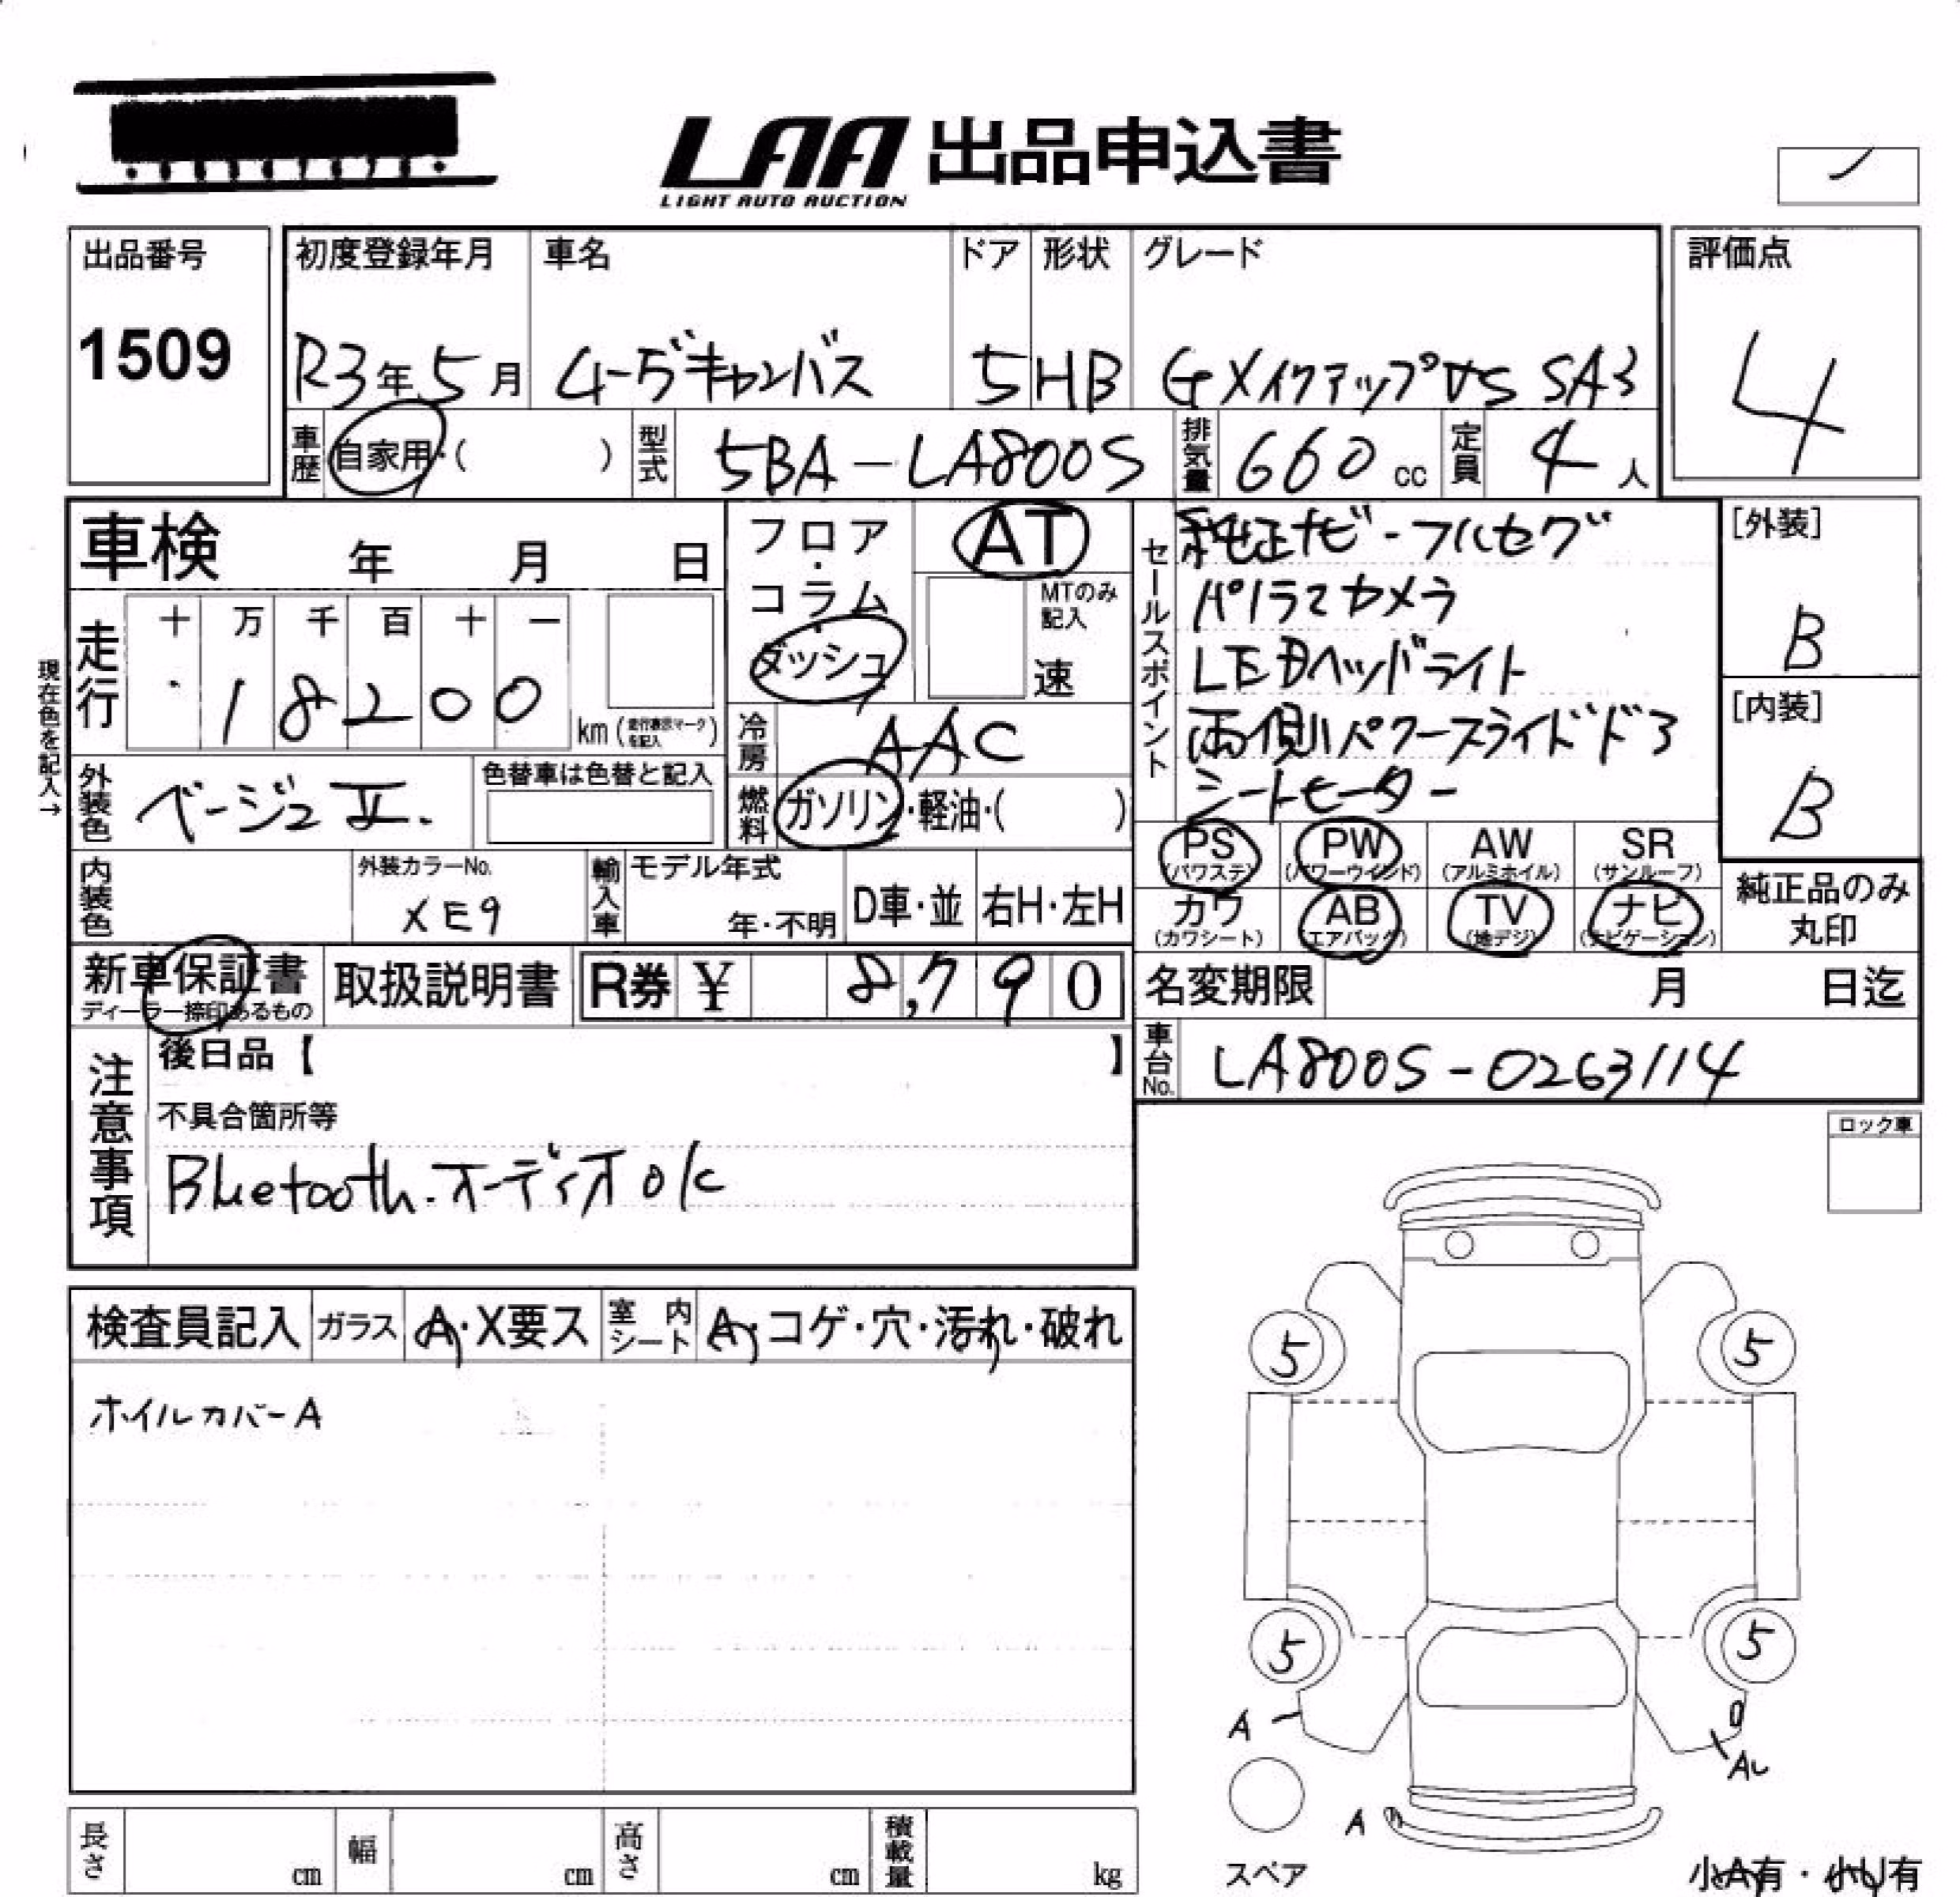 LAA 出品申込書
LIGHT AUTO AUCTION
出品番号
1509
初度登録年月 車名 ドア 形状 グレード
R3年5月 ムーヴキャンバス 5 HB GメイクアップVS SA3
評価点
4
車歴 自家用・( ) 型式 5BA-LA800S 排気量 660 cc 定員 4人
車検 年 月 日
フロア・コラム・ダッシュ
AT
MTのみ記入
速
現在色を記入→
走行 十 万 千 百 十 一
18200 km (走行表示マークを記入)
外装色 ベージュⅡ.
色替車は色替と記入
冷房 AAC
燃料 ガソリン・軽油・( )
内装色
外装カラーNo.
XE9
輸入車 モデル年式
年・不明 D車・並 右H・左H
セールスポイント
純正ナビ-フルセグ
パノラマカメラ
LEDヘッドライト
両側パワースライドドア
シートヒーター
[外装]
B
[内装]
B
PS PW AW SR
(パワステ) (パワーウインド) (アルミホイル) (サンルーフ)
カワ AB TV ナビ
(カワシート) (エアバック) (地デジ) (ナビゲーション)
純正品のみ
丸印
新車保証書 取扱説明書 R券 ¥ 8,790
ディーラー捺印あるもの
名変期限 月 日迄
車台No. LA800S-0263114
注意事項
後日品【 】
不具合箇所等
Bluetooth.オーディオok
ロック車
検査員記入 ガラス A・X要ス 室内シート A・コゲ・穴・汚れ・破れ
ホイルカバーA
5 5
5 5
A
A
スペア
小A有・小U有
長さ cm 幅 cm 高さ cm 積載量 kg